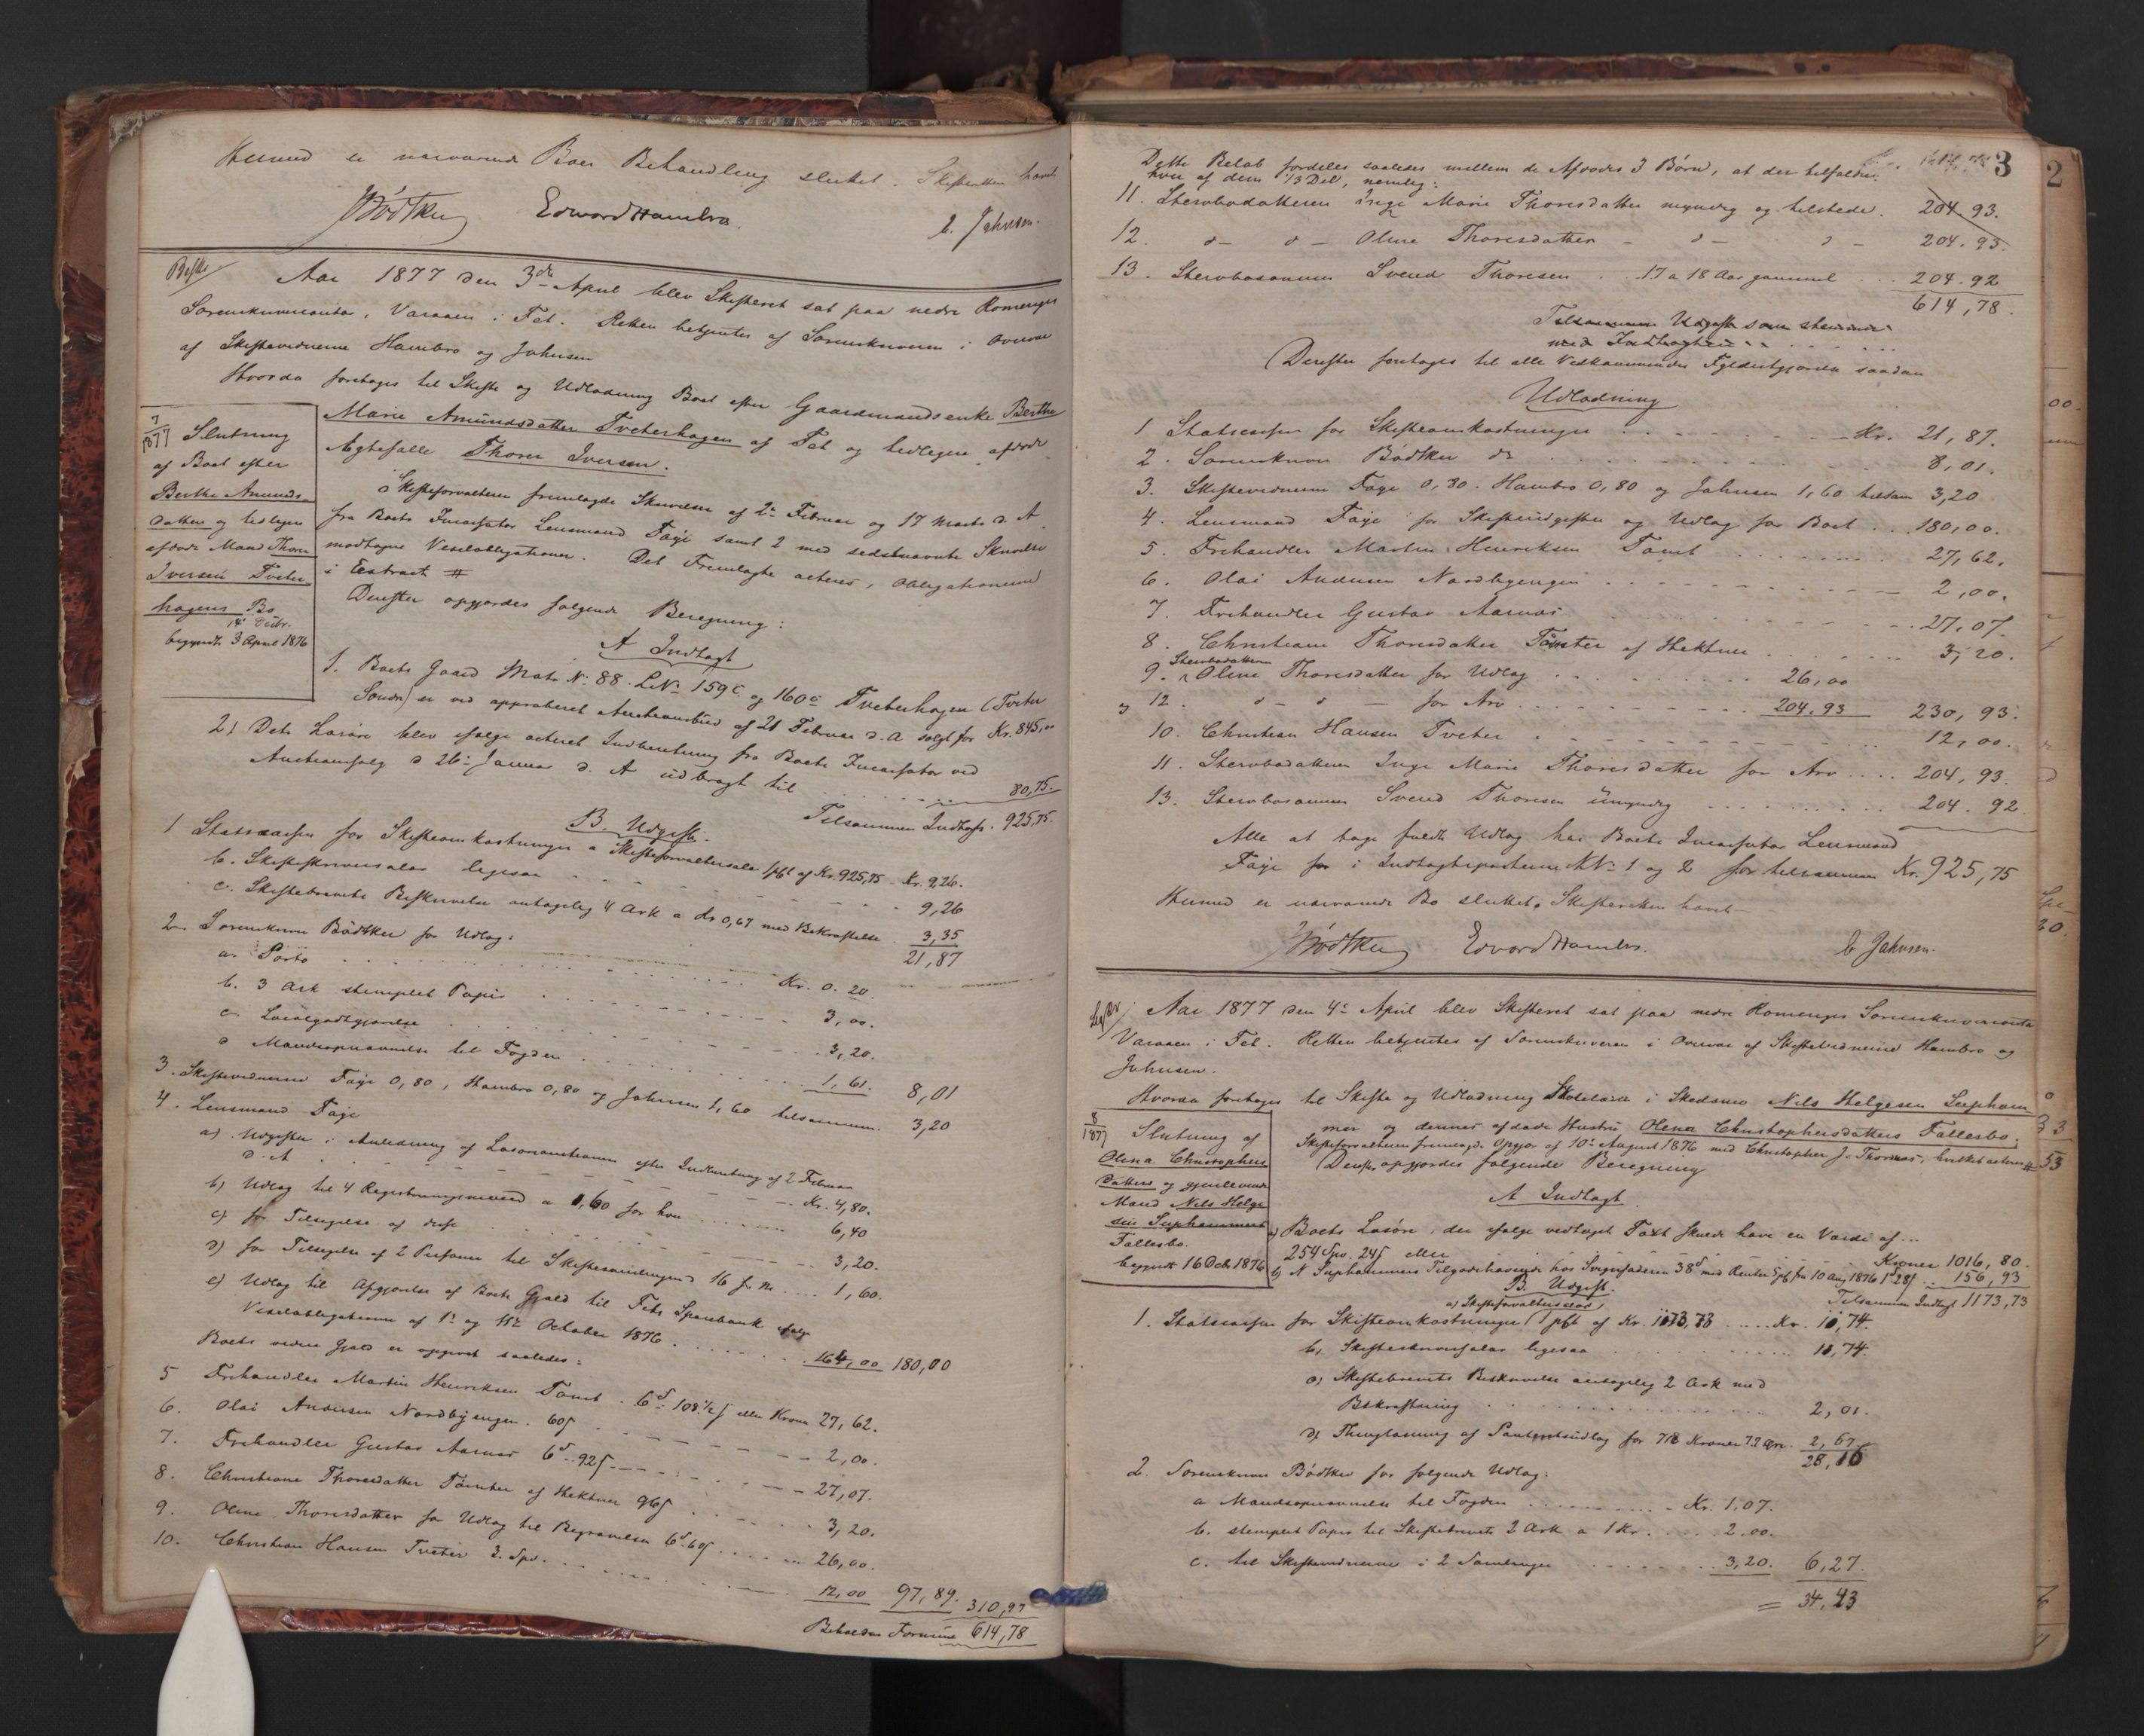 Hermed er nærværende Boes Behandling sluttet. Skifteretten hævet
Bödtker Edvard Hambro. C. Jahnsen.
Aar 1877 den 3die April blev Skifteret sat paa nedre Romeriges
Sorenskrivercontor, Varaaen i Fet. Retten betjentes af Sorenskriveren i Overvær
af Skiftevidnerne Hambro og Jahnsen
Hvorda foretoges til Skifte og Udlodning Boet efter Gaardmandsenke Berthe
Marie Amundsdatter Tveterhagen af Fet og tidligere afdøde
Ægtefælle Thorer Iversen.
7/1877 Slutning
af Boet efter
Berthe Amunds-
datter og tidligere
afdøde Mand Thorer
Iversen Tveter-
hagens Bo
begyndt 3 April 1876
Skifteforvalteren fremlagde Skrivelse af 2den Februar og 17 Marts d. A.
fra Boets Incassator Lensmand Faye samt 2 med sidstnævnte Skrivelse
modtagne Vexelobligationer. Det Fremlagte acteres, Obligationerne
i Extract #
Derefter opgjordes følgende Beregning:
A Indtægt
1. Boets Gaard Matr. No. 88. LNo 159c og 160c Tveterhagen (Tveter
Søndre) er ved approberet Auctionsbud af 21 Februar d. A solgt for Kr. 845,00
2) Dets Løsøre blev ifølge acteret Indberetning fra Boets Incassator ved
Auctionsalg d 26de Januar d. A udbragt til 80,75.
Tilsammen Indtægt. 925,75.
B. Udgift.
1 Statscassen for Skifteomkostninger a Skifteforvaltersalær 1 pCt af Kr. 925,75 - Kr. 9,26.
b. Skifteskriversalær ligesaa 9,26
c. Skiftebrevets Beskrivelse antagelig 4 Ark a Kr 0,67 med Bekræftelse 3,35
21,87
2. Sorenskriver Bödtker for Udlæg:
a. Porto Kr. 0. 20.
b. 3 Ark stemplet Papir 3,00.
c. Localgodtgjørelse 3,20.
d Mandsopnævnelse til Fogden 1,61. 8,01
3. Skiftevidnerne Faye 0,80, Hambro 0,80 og Jahnsen 1,60 tilsammen. 3,20
4. Lensmand Faye
a) Udgifter i Anledning af Løsøreauctionen efter Indberetning af 2 Februar
d. A Kr. 4,80.
b) Udlæg til 4 Registreringsmænd a 1,60 for hver 6,40
c) for Tilsigelse af disse 3,20.
d) for Tilsigelse af 2 Personer til Skiftesamlingen d 16 f. M. 1,60.
e) Udlæg til Afgjørelse af Boets Gjæld til Fets Sparebank ifølge
Vexelobligationer af 1ste og 15de October 1876 164,00 180,00
Boets videre Gjæld er opgivet saaledes:
5 Frihandler Martin Henriksen Tomt. 6d 108½ s eller Kroner 27,62.
6. Olai Andersen Nordbyengen. 60s 2,00.
7. Frihandler Gustav Aarnæs 6d 92s 27,07.
8. Christiane Thoresdatter Tömter af Hektner 96s 3,20.
9. Oline Thoresdatter for Udlæg til Begravelsen 6d 60s 26,00.
10. Christian Hansen Tveter 3. Spd. 12,00 97,89. 310,97
Beholden Formue 614,78
3
Dette Beløb fordeles saaledes mellem de Afdødes 3 Børn, at der tilfalder
hver af dem 1/3 Del, nemlig:
11. Stervbodatteren Inge Marie Thoresdatter myndig og tilstede. 204 93.
12. d- d- Oline Thoresdatter - d- d- 204. 93.
13. Stervbosønnen Svend Thoresen 17 a 18 Aar gammel 204. 92
614,78.
Tilsammen Udgift som stemmer
med Indtægten
Derefter foretoges til alle Vedkommendes Fyldestgjørelse saadan
Udlodning
1 Statscassen for Skifteomkostninger Kr. 21,87.
2. Sorenskriver Bödtker do 8,01.
3. Skiftevidnerne Faye 0,80. Hambro 0,80 og Jahnsen 1,60 tilsam 3,20
4. Lensmand Faye for Skifteudgifter og Udlæg for Boet 180,00.
5. Frihandler Martin Henriksen Tomt 27,62.
6. Olai Andersen Nordbyengen 2,00.
7. Frihandler Gustav Aarnæs 27,07.
8. Christiane Thoresdatter Tömter af Hektner 3,20.
9. Stervbodatteren Oline Thoresdatter for Udlæg 26,00
og 12. d- d- for Arv 204.93 230,93.
10. Christian Hansen Tveter 12,00.
11. Stervbodatteren Inge Marie Thoresdatter for Arv 204,93.
13. Stervbosønnen Svend Thoresen umyndig 204. 92
Alle at tage fuldt Udlæg hos Boets Incassator Lensmand
Faye for i Indtægtsposterne No 1 og 2 for tilsammen Kr. 925,75
Hermed er nærværende Bo sluttet. Skifteretten hævet
Bödtker Edvard Hambro. C Jahnsen.
Aar 1877 den 4de April blev Skifteret sat paa nedre Romeriges Sorenskrivercontor
Varaaen i Fet. Retten betjentes af Sorenskriveren i Overvær af Skiftevidnerne Hambro og
Jahnsen.
Hvorda foretoges til Skifte og Udlodning Skolelærer i Skedsmo Nils Helgesen Suphammer
og dennes afdøde Hustru Olena Christophersdatters Fallesbo.
8/1877 Slutning af
Olena Christophers-
datters og gjenlevende
Mand Nils Helge-
sen Suphammers
Fallesbo.
begyndt 16 Octr 1876
Skifteforvalteren fremlagde Opgjør af 10de August 1876 med Christopher J. Thornæs, hvilket acteres #
Derefter opgjordes følgende Beregning
A Indtægt
a) Boets Løsøre, der ifølge vedtaget Taxt skulde have en Værdi af
254 Spd. 24s eller Kroner 1016,80.
b) N Suphammers Tilgodehavende hos Svigerfaderen 38d med Renter 5 pCt fra 10 Aug 1876 1d 28s 156,93
Tilsammen Indtægt 1173,73
B. Udgift.
a) Skifteforvaltersalær
1. Statscassen for Skifteomkostninger 1 pCt af Kr. 1173,73 Kr. 11,74.
b, Skifteskriversalær ligesaa 11,74.
c) Skiftebrevets Beskrivelse antagelig 2 Ark med
Bekræftning 2,01.
d) Thinglæsning af Panteretsudlæg for 718 Kroner 73 Øre. 2,67
28,16
2. Sorenskriver Bödtker for følgende Udlæg:
a Mandsopnævnelse til Fogden Kr. 1,07.
b. stemplet Papir til Skiftebrevet 2 Ark a 1 Kr. 2.00.
c. til Skiftevidnerne i 2 Samlinger 3,20. 6,27
= 34,43
2